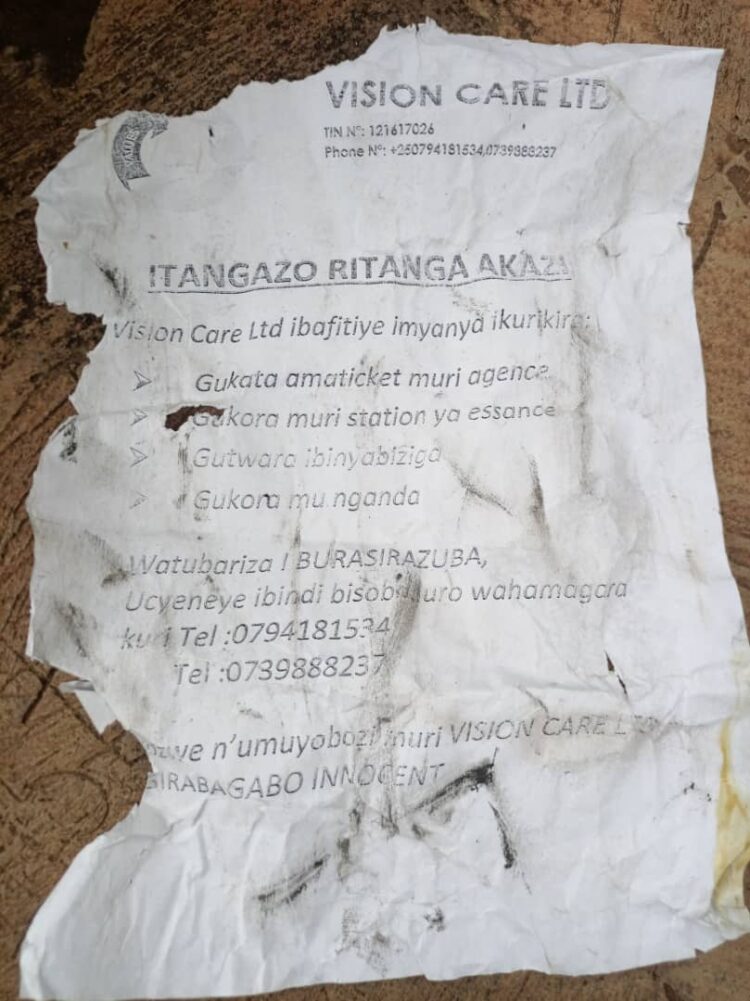 VISION CARE LTD
TIN Nº: 121617026
Phone Nº: +250794181534,0739888237
ITANGAZO RITANGA AKAZI
Vision Care Ltd ibafitiye imyanya ikurikira:
➢ Gukata amaticket muri agence
➢ Gukora muri station ya essance
➢ Gutwara ibinyabiziga
➢ Gukora mu nganda
Watubariza I BURASIRAZUBA,
Ucyeneye ibindi wahamagara
kuri Tel :0794181534
Tel :0739888237
n'umuyobozi muri VISION CARE LTD
INNOCENT